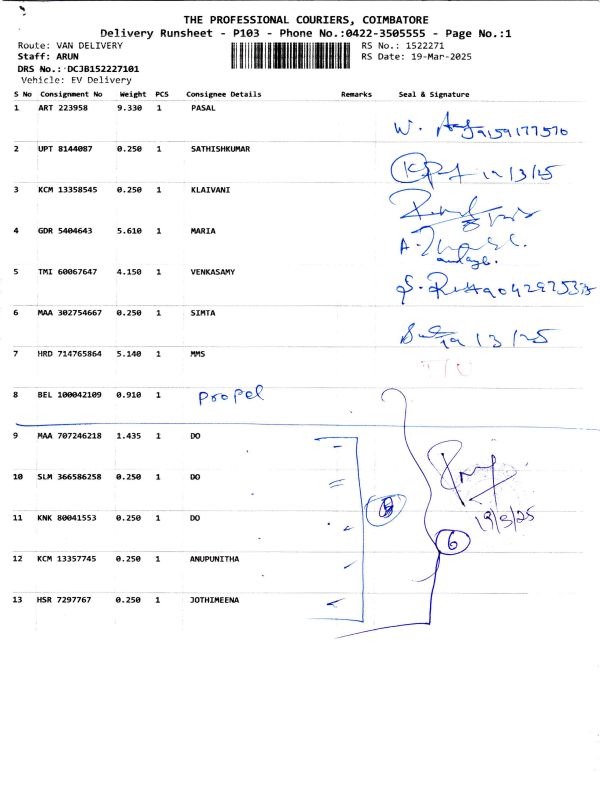 THE PROFESSIONAL COURIERS, COIMBATORE
Delivery Runsheet - P103 - Phone No.:0422-3505555 - Page No.:1
Route: VAN DELIVERY RS No.: 1522271
Staff: ARUN RS Date: 19-Mar-2025
DRS No.: DCJB152227101
Vehicle: EV Delivery
S No Consignment No Weight PCS Consignee Details Remarks Seal & Signature
1 ART 223958 9.330 1 PASAL
W. 9159177570
2 UPT 8144087 0.250 1 SATHISHKUMAR
3 KCM 13358545 0.250 1 KLAIVANI
4 GDR 5404643 5.610 1 MARIA
5 TMI 60067647 4.150 1 VENKASAMY
6 MAA 302754667 0.250 1 SIMTA
19/3/25
7 HRD 714765864 5.140 1 MMS
8 BEL 100042109 0.910 1 propel
9 MAA 707246218 1.435 1 DO
10 SLM 366586258 0.250 1 DO
11 KNK 80041553 0.250 1 DO
19/3/25
6
12 KCM 13357745 0.250 1 ANUPUNITHA
13 HSR 7297767 0.250 1 JOTHIMEENA